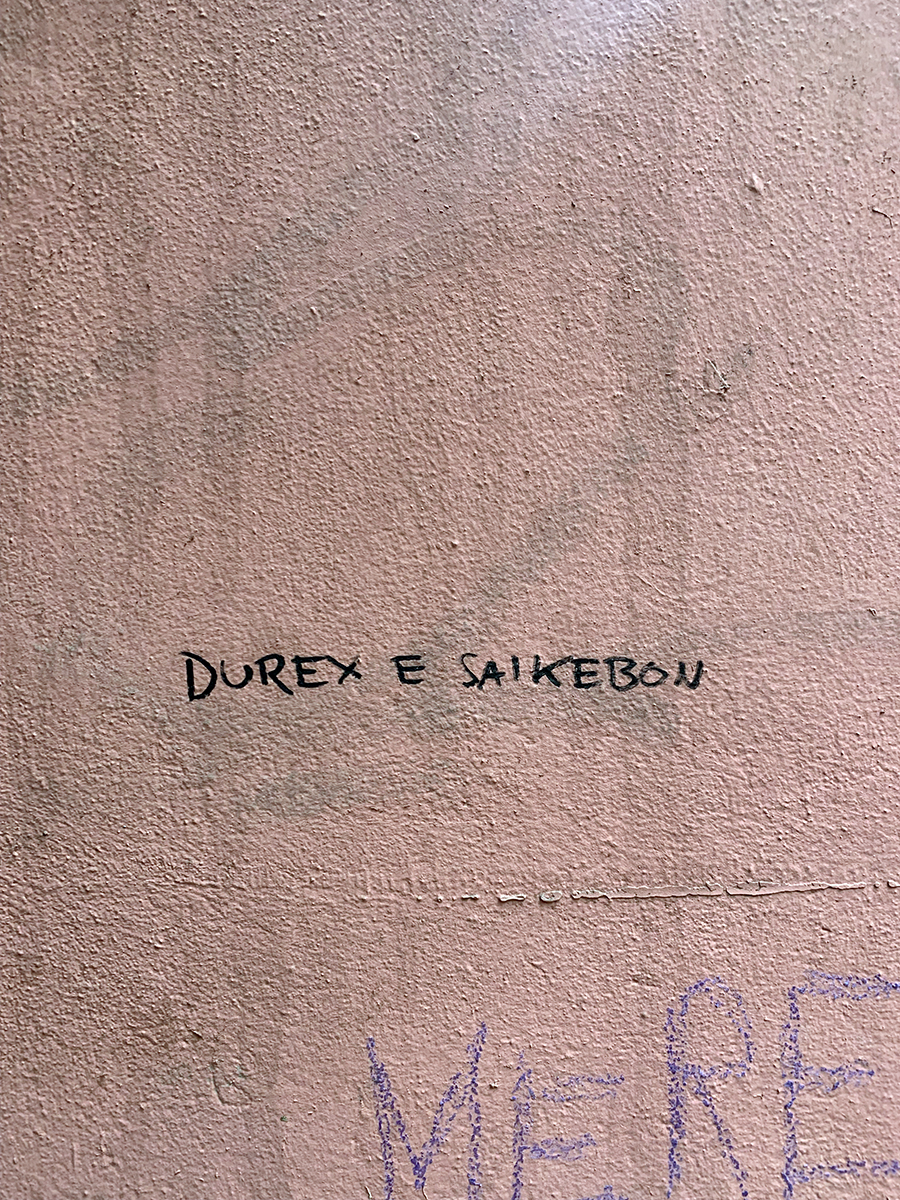 DUREX E SAIKEBON
MERE